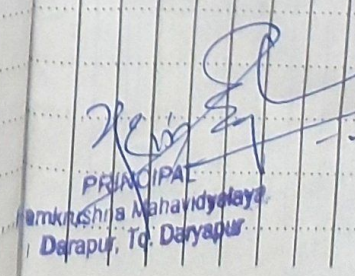 PRINCIPAL
Ramkrushna Mahavidyalaya
Darapur, Tq. Daryapur